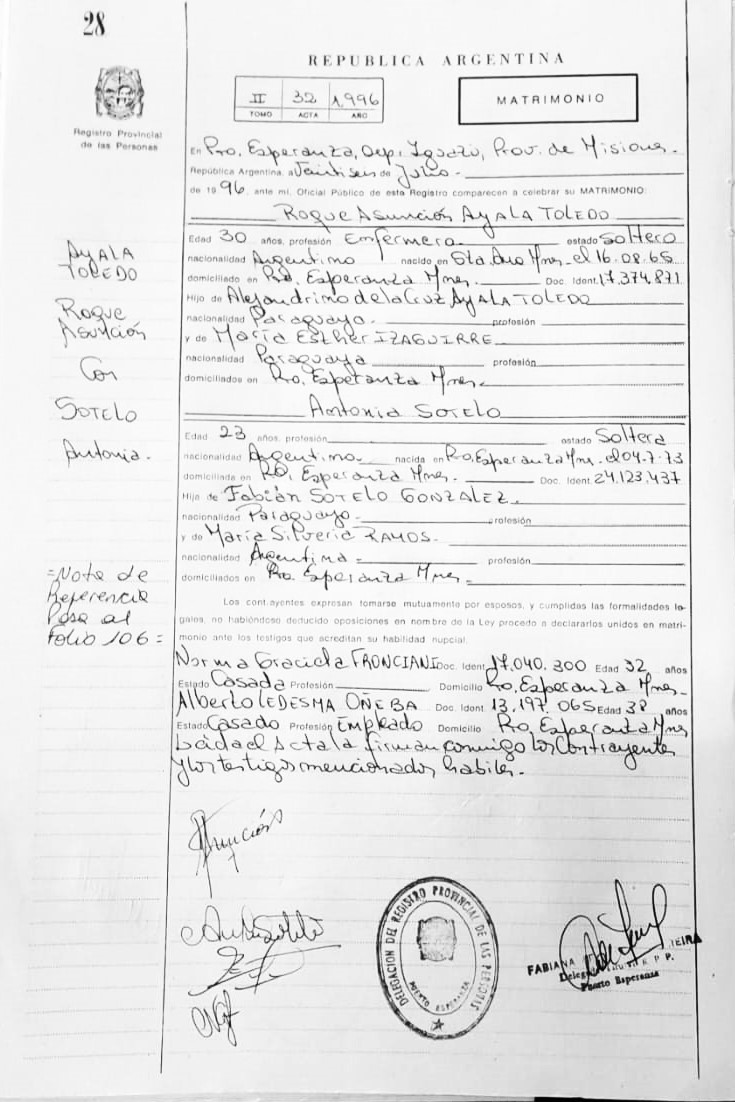 28
REPUBLICA ARGENTINA
II 32 1.996
TOMO ACTA AÑO
MATRIMONIO
Registro Provincial
de las Personas
En Pto. Esperanza, Dep. Iguazú, Prov. de Misiones.-
República Argentina, a Veintiseis de Julio.-
de 1996. ante mí, Oficial Público de este Registro comparecen a celebrar su MATRIMONIO:
Roque Asunción AYALA TOLEDO
Edad 30 años, profesión Enfermero estado Soltero
nacionalidad Argentino nacido en Sta. Ana Mnes. el 16.08.65
domiciliado en Pto. Esperanza Mnes. Doc. Ident. 17.374.871
Hijo de Alejandrino de la Cruz AYALA TOLEDO
nacionalidad Paraguayo.- profesión
y de María ESther IZAGUIRRE
nacionalidad Paraguaya profesión
domiciliados en Pto. Esperanza Mnes.-
Antonia SOTELO
Edad 23 años, profesión estado Soltera
nacionalidad Argentina.- nacida en Pto. Esperanza Mnes. el 04.7.73
domiciliada en Pto. Esperanza Mnes.- Doc. Ident. 24.123.437
Hija de Fabián SOTELO GONZALEZ.
nacionalidad Paraguayo.- profesión
y de María Silveria RAMOS.-
nacionalidad Argentina.- profesión
domiciliados en Pto. Esperanza Mnes.-
AYALA
TOLEDO
Roque
Asunción
Con
SOTELO
Antonia.-
=Nota de
Referencia
Pasa al
Folio 106=
Los contrayentes expresan tomarse mutuamente por esposos, y cumplidas las formalidades le-
gales, no habiéndose deducido oposiciones en nombre de la Ley procedo a declararlos unidos en matri-
monio ante los testigos que acreditan su habilidad nupcial.
Norma Graciela FRONCIANI Doc. Ident. 17.040.300 Edad 32 años
Estado Casada Profesión Domicilio Pto. Esperanza Mnes.-
Alberto LEDESMA OÑEBA Doc. Ident. 13.197.065 Edad 38 años
Estado Casado Profesión Empleado Domicilio Pto. Esperanza Mnes
Leida el Acta la firman conmigo los Contrayentes
y los testigos mencionados habiles.-
Asunción
DELEGACION DEL REGISTRO PROVINCIAL DE LAS PERSONAS
PUERTO ESPERANZA
FABIANA
Puerto Esperanza